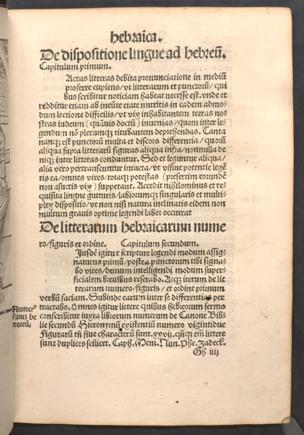 hebraica.
De dispositione lingue ad hebreũ.
Capitulum primum.
ras litteras debita pronunctiatione in mediũ
proferre cupiens, vt litterarum et punctorũ, qui
bus scribitur noticiam habeat necesse est. vnde et
redditur etiam ab ineũte etate nutritis in eadem admo
dum lectione difficilis, vt vix inhabitantem terras no
stras iudeum (quãuis doctũ) inuenias, quem in le
gendum nõ plerumqz titubantem deprehendas.
na est punctorũ multa et discors differentia, quorũ
aliqua supra litterarũ figuras aliqua infra, nonnulla de
niqz inter litteras conduntur. Sed et leguntur aliqua,
alia vero pertranseuntur intacta, vt vissine potentie
tis ea, omnes vires, potesti (preserim eorundẽ
non asluetis vix) suppetant. Accedit nihilominus et re
quisita lingue gutturis, labiorumqz singularis et multi
plex dispositio, vt non nisi natura inclinatis eidem non
multum grauis optime legendi labor occurrat
De litterarum hebraicarum nume
ro, figuris et ordine. Capitulum secundum.
igitur scripture legendi modum assig
naturus primũ, postea punctorum tibi signa
bo vires, demum intelligendi modum super
ficialem breuibus reserabo. itaqz iterum de lit
terarum numero, figuris et ordine primum
verbũ faciam. Subinde earum inter se differentias per
tractabo. Omnes igitur littere quibus hebreorum sermo
conscribitur iuxta librorum numerum de Canone Bib
lie secundũ Hieronymũ existentiũ numero vigintidue
Figurarũ tñ siue characterũ sunt.xxvij. quinqz em̃ littere
sunt duplices scilicet. Caph, Mem, Nun, Phe, Zadeck.
nus he